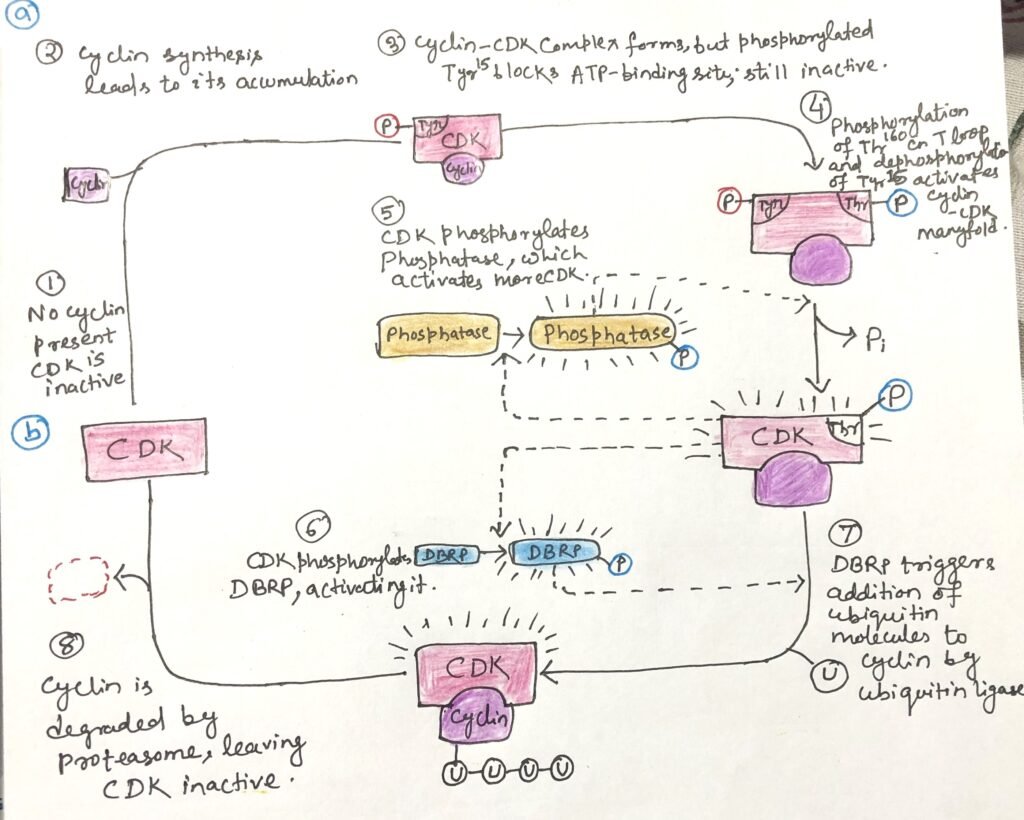 a
② Cyclin synthesis
leads to its accumulation
③ Cyclin-CDK Complex forms, but phosphorylated
Tyr¹⁵ blocks ATP-binding site; still inactive.
P Tyr CDK
Cyclin
Cyclin
④ Phosphorylation
of Thr¹⁶⁰ on T loop
and dephosphorylatio
of Tyr¹⁵ activates
cyclin
-CDK
manyfold.
P Tyr Thr P
⑤
CDK phosphorylates
Phosphatase, which
activates more CDK.
Phosphatase Phosphatase
P
Pi
①
No cyclin
present
CDK is
inactive
b
CDK
P
CDK Thr
⑥
CDK phosphorylates
DBRP, activating it.
DBRP DBRP
P
⑦
DBRP triggers
addition of
ubiquitin
molecules to
cyclin by
ubiquitin ligase
U
⑧
Cyclin is
degraded by
proteasome, leaving
CDK inactive.
CDK
Cyclin
U U U U